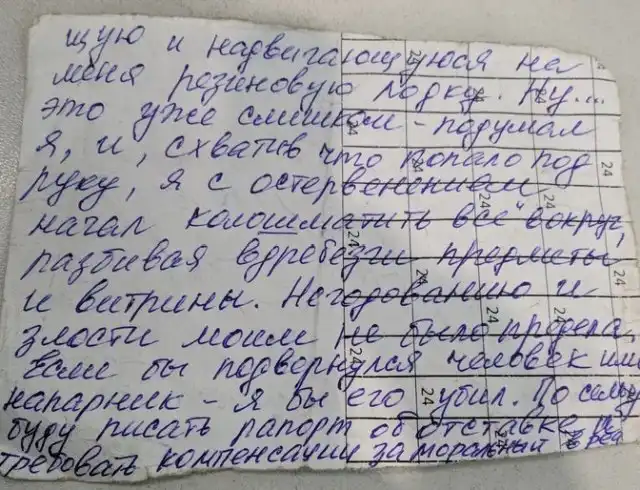 щую и надвигающуюся на
меня резиновую лодку. Ну...
это уже слишком - подумал
я, и, схватив что попало под
руку, я с остервенением
начал колошматить все вокруг,
разбивая вдребезги предметы
и витрины. Негодованию и
злости моим не было предела.
Если бы подвернулся человек или
напарник - я бы его убил. По сему
буду писать рапорт об отставке и
требовать компенсации за моральный вред
24
24
24
24
24
24
24
24
24
24
24
24
24